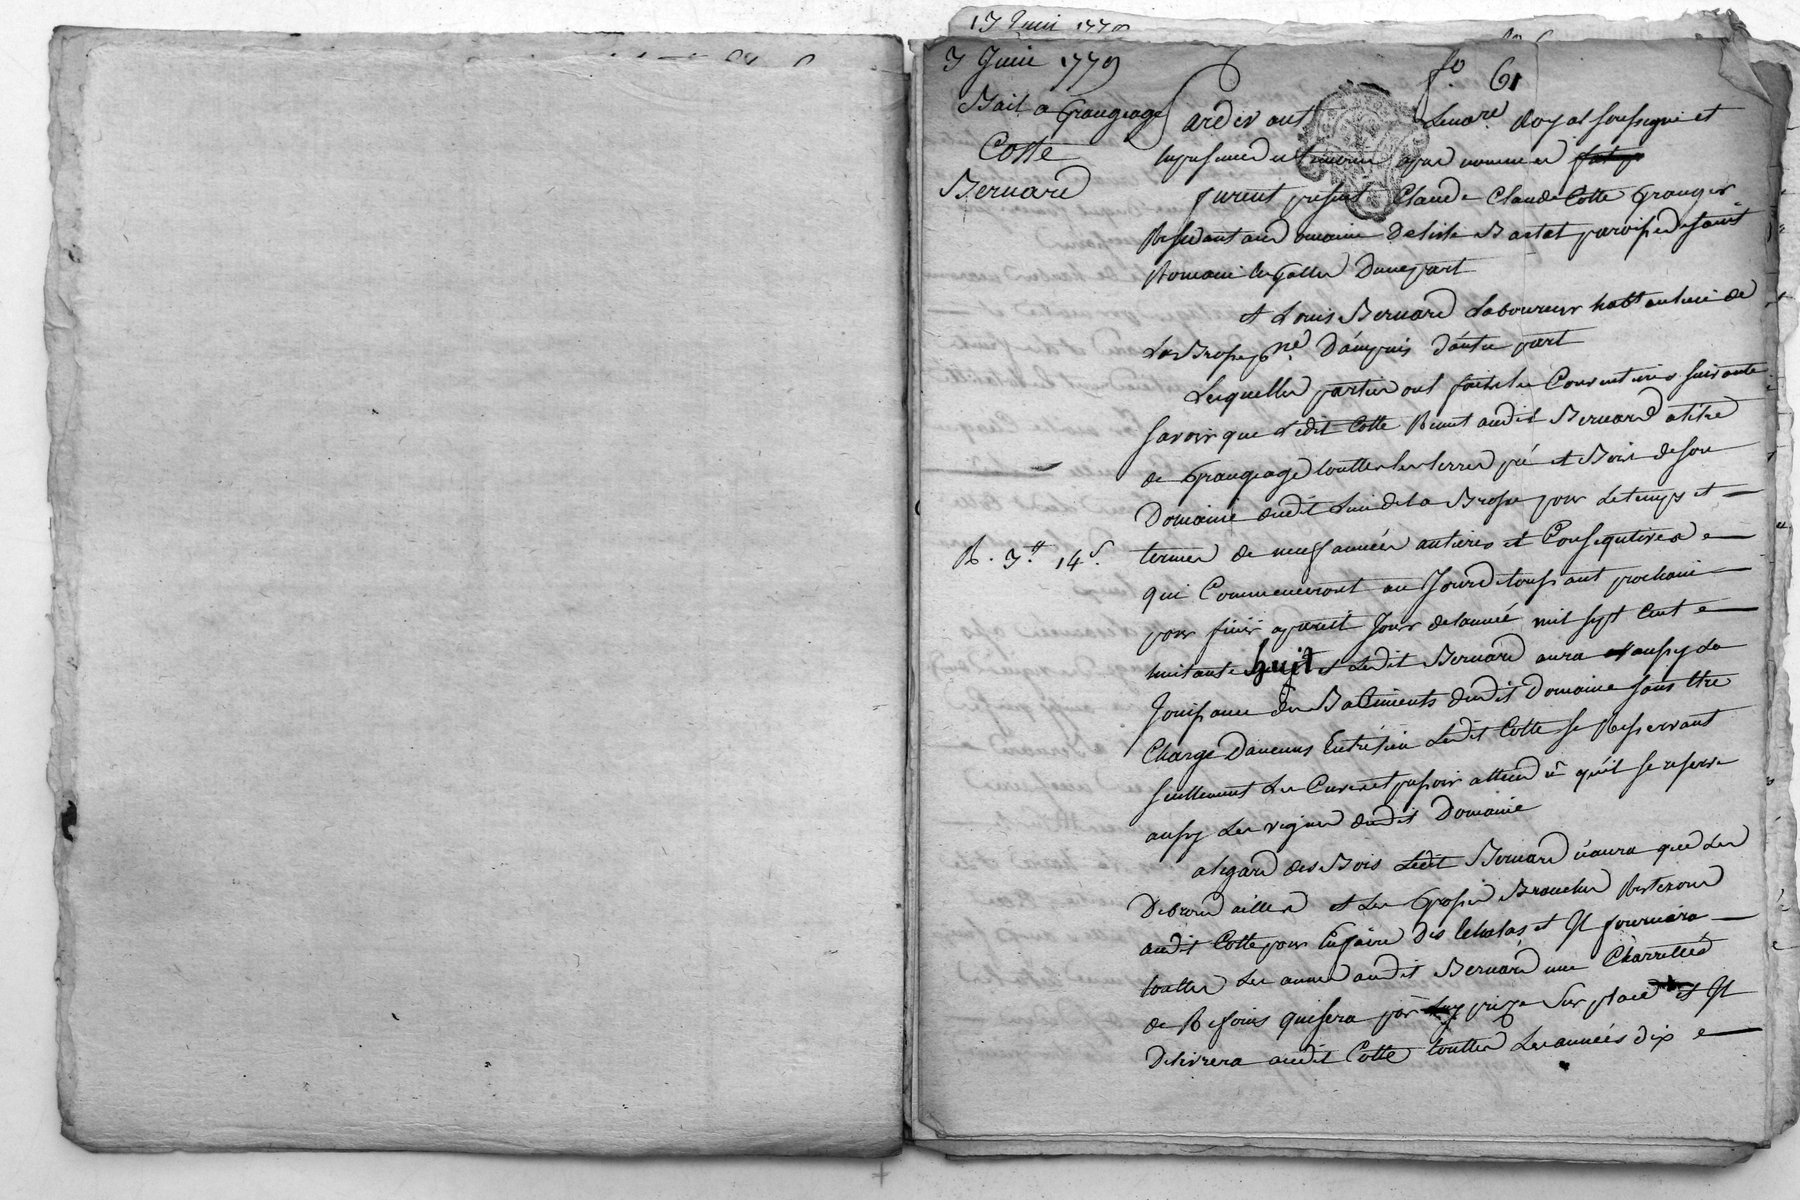 13 Juin 1779
3 Juin 1779
fo 61
Bail a Grangeage
Cotte
Bernard
R. 3.tt 14 s.
Pardevant Le no.re Royal soussigné et
En presence des temoins apres nommes
furent presents Claude Claude Cotte Granger
Residant au domaine Delisle Bartat paroisse de saint
Romain en Galles D'une part
et Louis Bernard Laboureur habt au lieu de
La Brosse p.sse D'ampuis D'autre part
Lesquelles parties ont fait les Conventions suivantes
savoir que Ledit Cotte Remet audit Bernard a titre
de Grangeage touttes les terres pré et Bois de son
Domaine dudit Lieu de La Brosse pour Le temps et
termes de neuf années antieres et Consequtives
qui Commenceront au Jour de toussant prochain
pour finir a pareil Jour de l'année mil sept Cent
huitante huit et Ledit Bernard aura aussy La
Jouissance des Batiments dudit Domaine sans Etre
Chargé D'aucuns Entretien Ledit Cotte se Reservant
seullement Les Cuves et pressoir attendu qu'il se reserve
aussy Les vignes dudit Domaine
a legard des Bois Ledit Bernard n'aura que Les
Debrondailles et Les Grosses Branches Resterons
audit Cotte pour En faire Des Echalas et Il fournira
touttes Les annes audit Bernard une Charrettés
de Besoins qui sera prise Sur place et Il
Delivrera audit Cotte touttes Les années dix